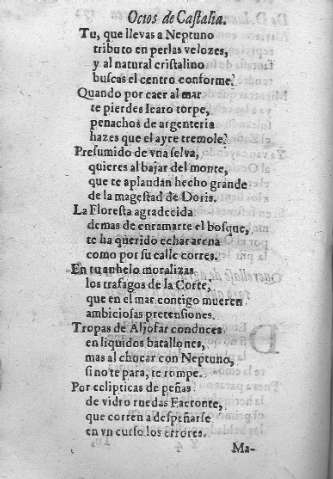 Ocios de Castalia.
Tu, que llevas a Neptuno
tributo en perlas velozes,
y al natural cristalino
buscas el centro conforme?
Quando por caer al mar
te pierdes Icaro torpe,
penachos de argenteria
hazes que el ayre tremole?
Presumido de vna selva,
quieres al bajar del monte,
que te aplaudan hecho grande
de la magestad de Doris.
La Floresta agradecida
demas de enramarte el bosque,
te ha querido echar arena
como por su calle corres.
En tu anhelo moralizas
los trafagos de la Corte,
que en el mar contigo mueren
ambiciosas pretensiones.
Tropas de Aljofar conduces
en liquidos batallones,
mas al chocar con Neptuno,
si no te para, te rompe.
Por eclipticas de peñas
de vidro ruedas Faetonte,
que corren a despeñarse
en vn curso los errores.
Ma-